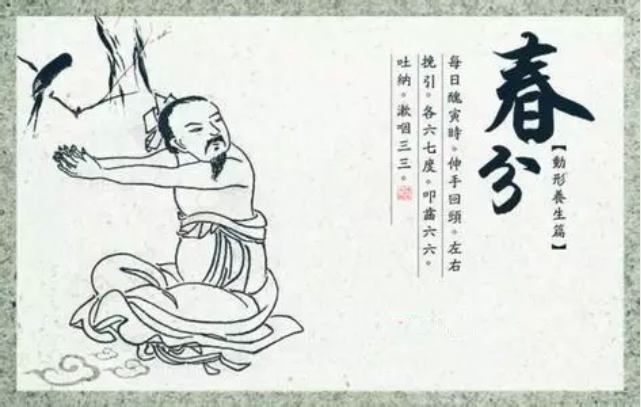 春分
【動形養生篇】
每日醜寅時。伸手回頭。左右
挽引。各六七度。叩齒六六。
吐納。漱咽三三。